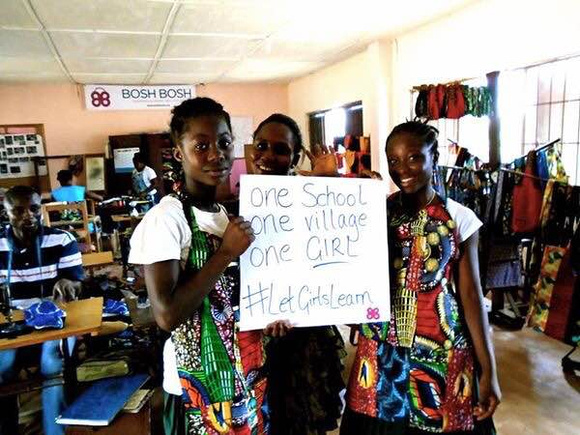 BOSH BOSH
one School
one village
one GIRL
#LetGirlsLearn